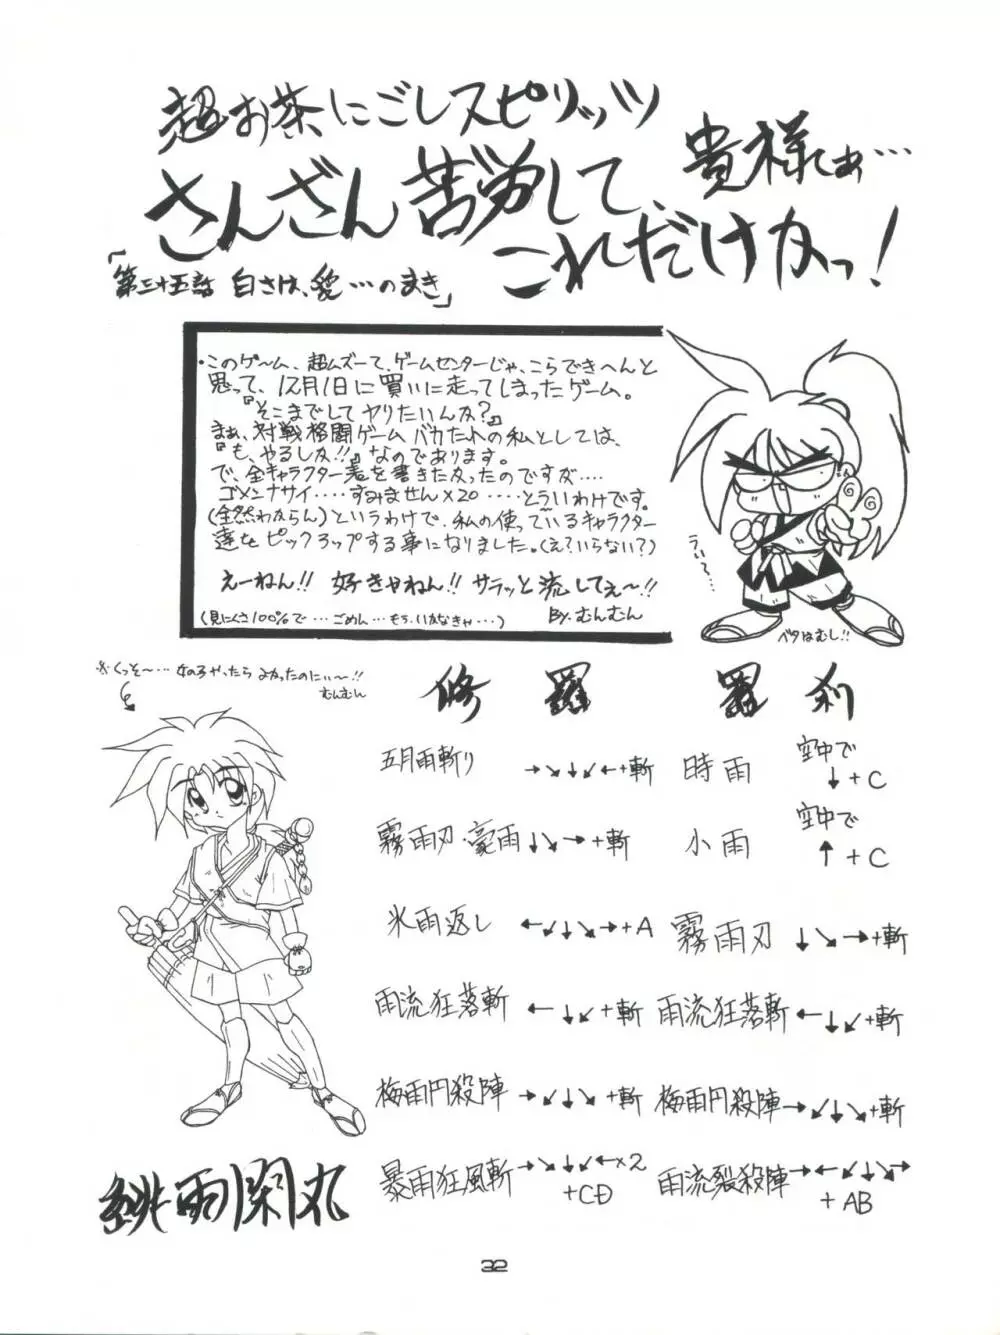 超お茶にごしスピリッツ
さんざん苦労して、貴様てぁ…
これだけかっ!
「第三十五話 白さは、愛…のまき」
・このゲーム、超ムズーて、ゲームセンターじゃ、こらできへんと
思って、12月1日に買いに走ってしまったゲーム。
『そこまでしてヤリたいんか?』
まぁ、対戦格闘ゲームバカたれの私としては、
『も、やるしか!!』なのであります。
で、全キャラクター表を書きたかったのですが…‥
ゴメンナサイ‥‥すみません×20‥‥とういわけです。
(全然わからん)というわけで、私の使っているキャラクター
達をピックアップする事になりました。(え?いらない?)
えーねん!! 好きゃねん!! サラッと流してぇ〜!!
(見にくさ100%で…ごめん…もち、いかなきゃ…)
By.むんむん
うぃ〜‥
ベタはむし!!
※くっそ〜…女の子やったらよかったのにぃ〜!!
むんむん
修羅 羅刹
五月雨斬り →↘↓↙←+斬 時雨 空中で↓+C
霧雨刃・豪雨 ↓↘→+斬 小雨 空中で↑+C
氷雨返し ←↙↓↘→+A 霧雨刃 ↓↘→+斬
雨流狂落斬 ←↓↙+斬 雨流狂落斬 ←↓↙+斬
梅雨円殺陣 →↙↓↘+斬 梅雨円殺陣 →↙↓↘+斬
暴雨狂風斬 →↘↓↙←×2+CD 雨流裂殺陣 →←↙↓↘→+AB
緋雨閑丸
32